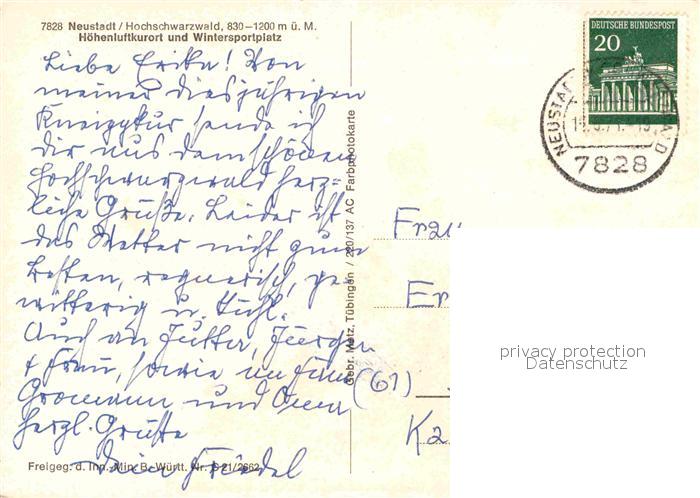 7828 Neustadt / Hochschwarzwald, 830–1200 m ü. M.
Höhenluftkurort und Wintersportplatz
Liebe Erika! Von
meiner diesjährigen
Kneippkur sende ich
dir aus dem schönen
Hochschwarzwald herz-
liche Grüße. Leider ist
das Wetter nicht zum
besten, regnerisch, ge-
witterig u. kühl.
Auch an Jutta, Jürgen
+ Frau, sowie an Fam.
Gromann und Oma
herzl. Grüße
Dein Friedel
Freigeg. d. Inn. Min. B.-Württ. Nr. S 21/2662
Gebr. Metz, Tübingen / 220/137 AC Farbphotokarte
DEUTSCHE BUNDESPOST
20
NEUSTADT
7828
Frau
Er
(61)
Ka
privacy protection
Datenschutz